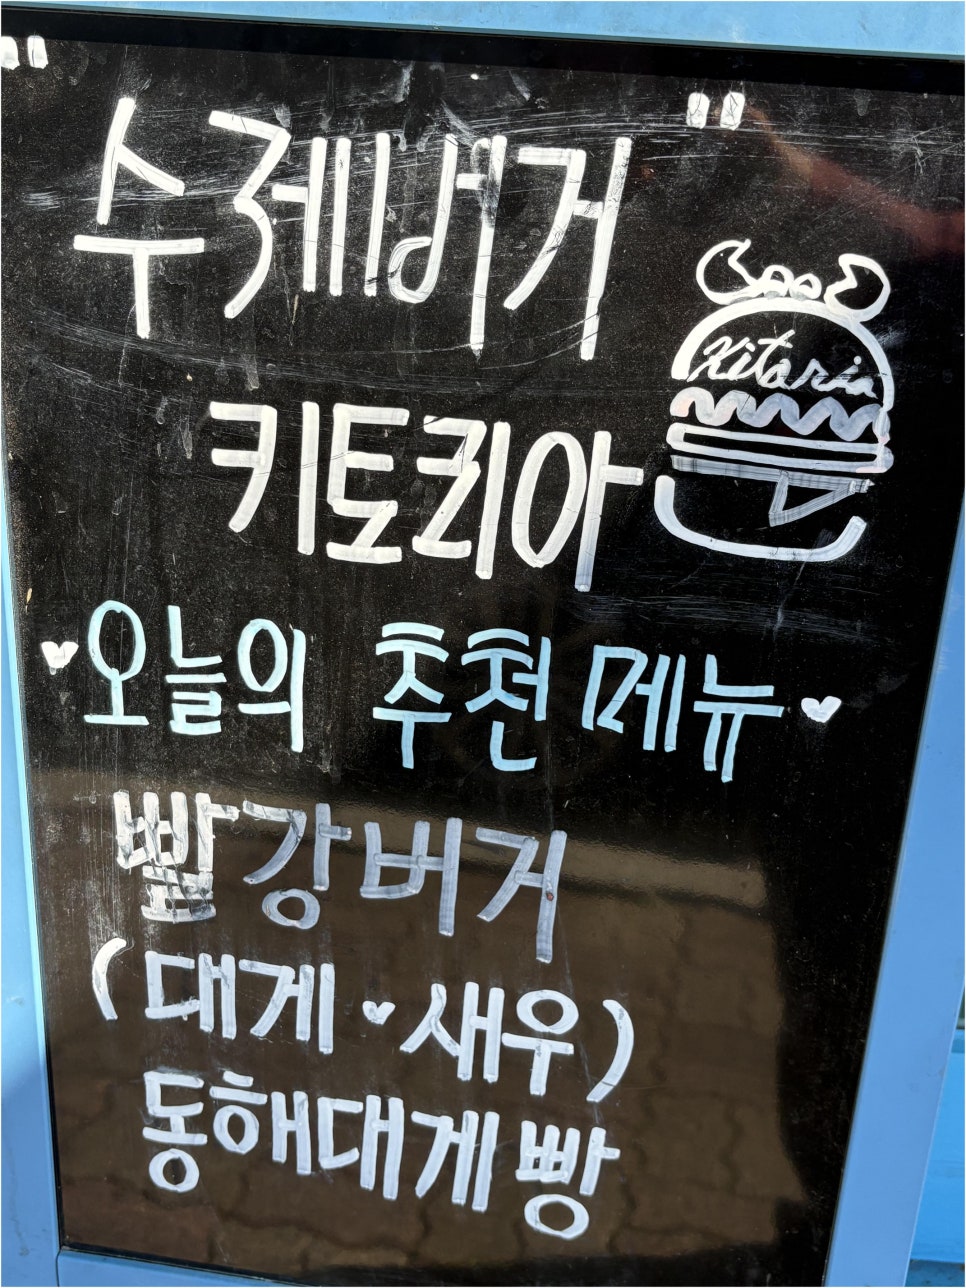 "수제버거"
Kitoria
키토리아
♥오늘의 추천 메뉴♥
빨강버거
(대게♥새우)
동해대게빵